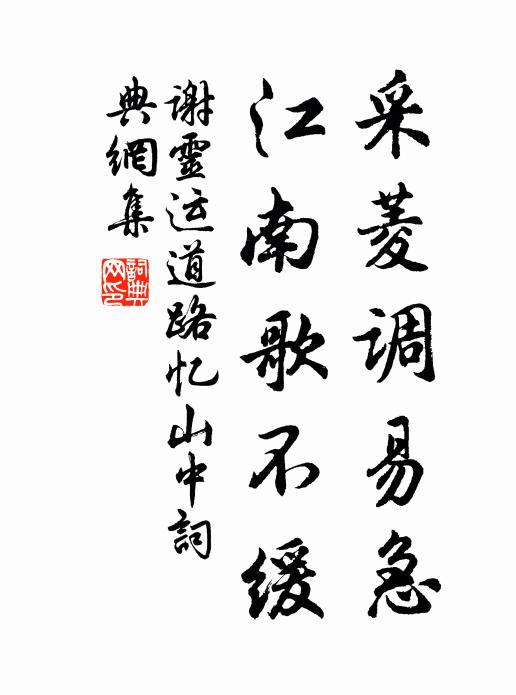 采菱调易急
江南歌不缓
谢靈运道路忆山中詞
典網集
詞典
网印